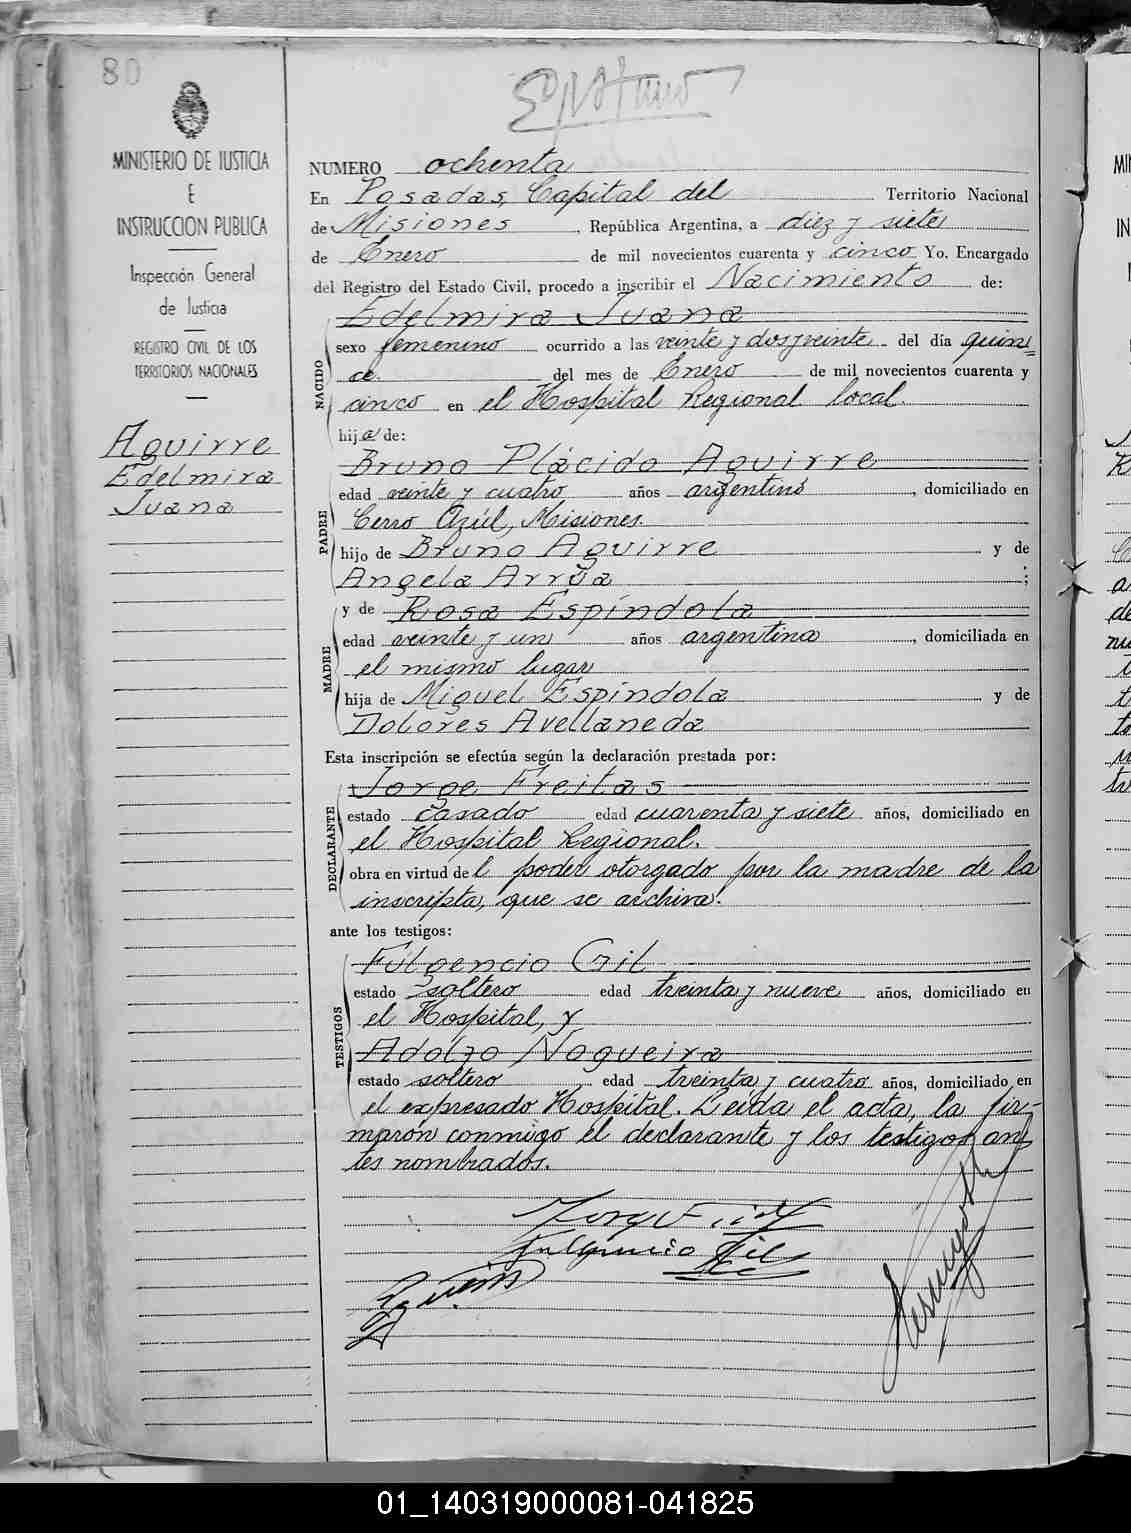 80
MINISTERIO DE JUSTICIA
E
INSTRUCCION PUBLICA
Inspección General
de Justicia
REGISTRO CIVIL DE LOS
TERRITORIOS NACIONALES
Aguirre
Edelmira
Juana
NUMERO ochenta
En Posadas, Capital del Territorio Nacional
de Misiones, República Argentina, a diez y siete
de Enero de mil novecientos cuarenta y cinco Yo, Encargado
del Registro del Estado Civil, procedo a inscribir el Nacimiento de:
NACIDO
Edelmira Juana
sexo femenino ocurrido a las veinte y dos y veinte del día quin=
ce. del mes de Enero de mil novecientos cuarenta y
cinco en el Hospital Regional local.
hija de:
PADRE
Bruno Plácido Aguirre
edad veinte y cuatro años argentino, domiciliado en
Cerro Azúl, Misiones.
hijo de Bruno Aguirre y de
Angela Arrúa ;
MADRE
y de Rosa Espíndola
edad veinte y un años argentina, domiciliada en
el mismo lugar
hija de Miguel Espíndola y de
Dolores Avellaneda
Esta inscripción se efectúa según la declaración prestada por:
DECLARANTE
Jorge Freitas
estado casado edad cuarenta y siete años, domiciliado en
el Hospital Regional.
obra en virtud del poder otorgado por la madre de la
inscripta, que se archiva.
ante los testigos:
TESTIGOS
Fulgencio Gil
estado soltero edad treinta y nueve años, domiciliado en
el Hospital, y
Adolfo Nogueira
estado soltero edad treinta y cuatro años, domiciliado en
el expresado Hospital. Leída el acta, la fir-
maron conmigo el declarante y los testigos an
tes nombrados.
Fulgencio Gil
01_140319000081-041825